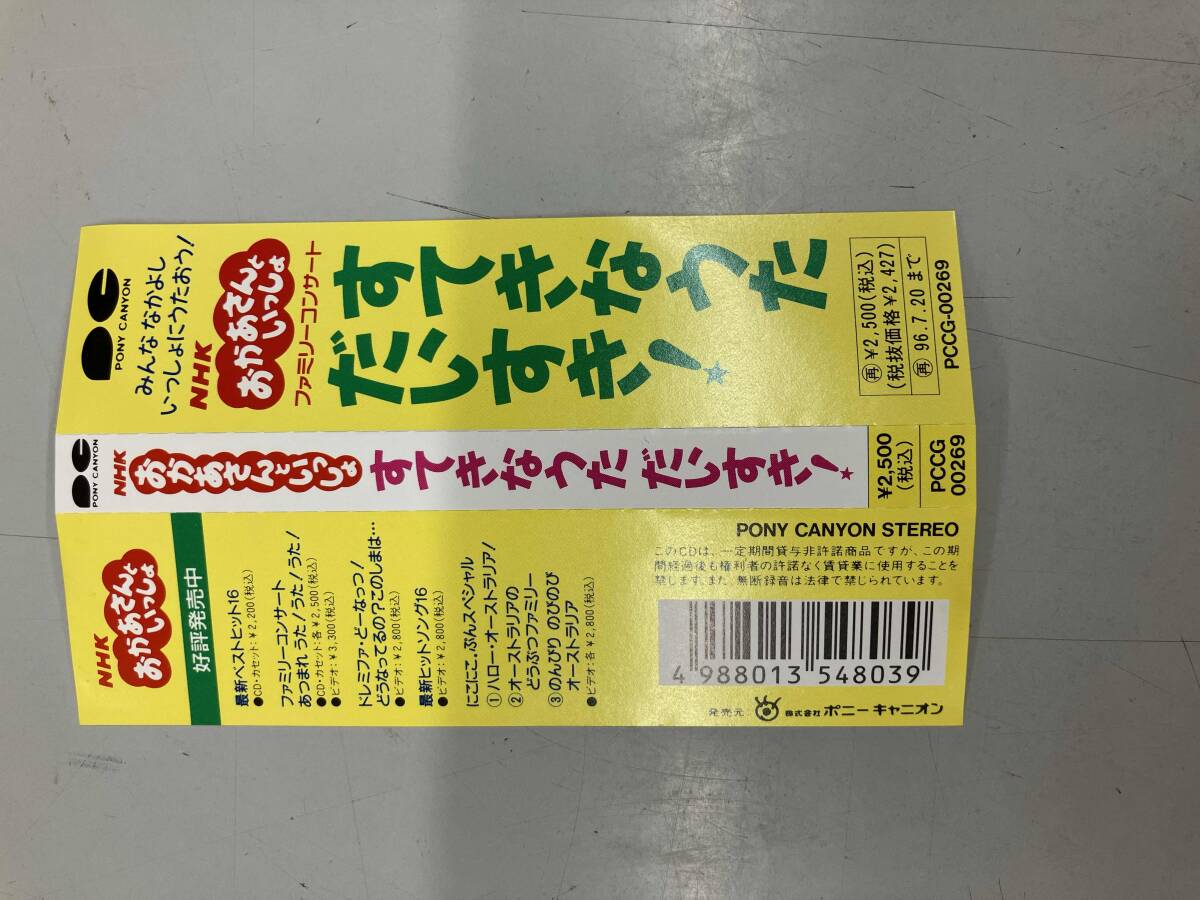 PONY CANYON
みんな なかよし
いっしょにうたおう!
NHK
おかあさんと
いっしょ
ファミリーコンサート
すてきなうた
だいすき!
再¥2,500(税込)
(税抜価格¥2,427)
再96.7.20まで
PCCG-00269
PONY CANYON
NHK
おかあさんといっしょ
すてきなうた だいすき!
¥2,500
(税込)
PCCG
00269
NHK
おかあさんと
いっしょ
好評発売中
最新ベストヒット16
●CD・カセット:¥2,200(税込)
ファミリーコンサート
あつまれ うた!うた!うた!
●CD・カセット:各¥2,500(税込)
●ビデオ:¥3,300(税込)
ドレミファ・どーなっつ!
どうなってるの?このしまは…
●ビデオ:¥2,800(税込)
最新ヒットソング16
●ビデオ:¥2,800(税込)
にこにこ、ぷんスペシャル
①ハロー・オーストラリア!
②オーストラリアの
どうぶつファミリー
③のんびり のびのび
オーストラリア
●ビデオ:各¥2,800(税込)
PONY CANYON STEREO
このCDは、一定期間貸与非許諾商品ですが、この期
間経過後も権利者の許諾なく賃貸業に使用することを
禁じます。また、無断録音は法律で禁じられています。
4 988013 548039
発売元 株式会社 ポニーキャニオン